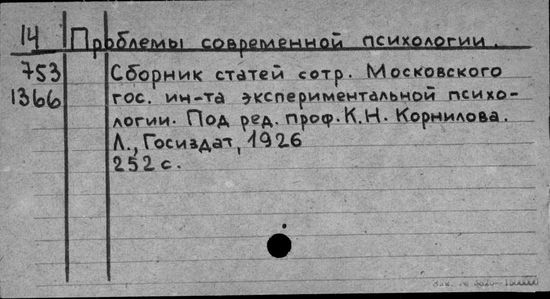 14 Проблемы современной психологии.
753 Сборник статей сотр. Московского
1366 гос. ин-та экспериментальной психо-
логии. Под ред. проф. К.Н. Корнилова.
Л., Госиздат, 1926
252 с.